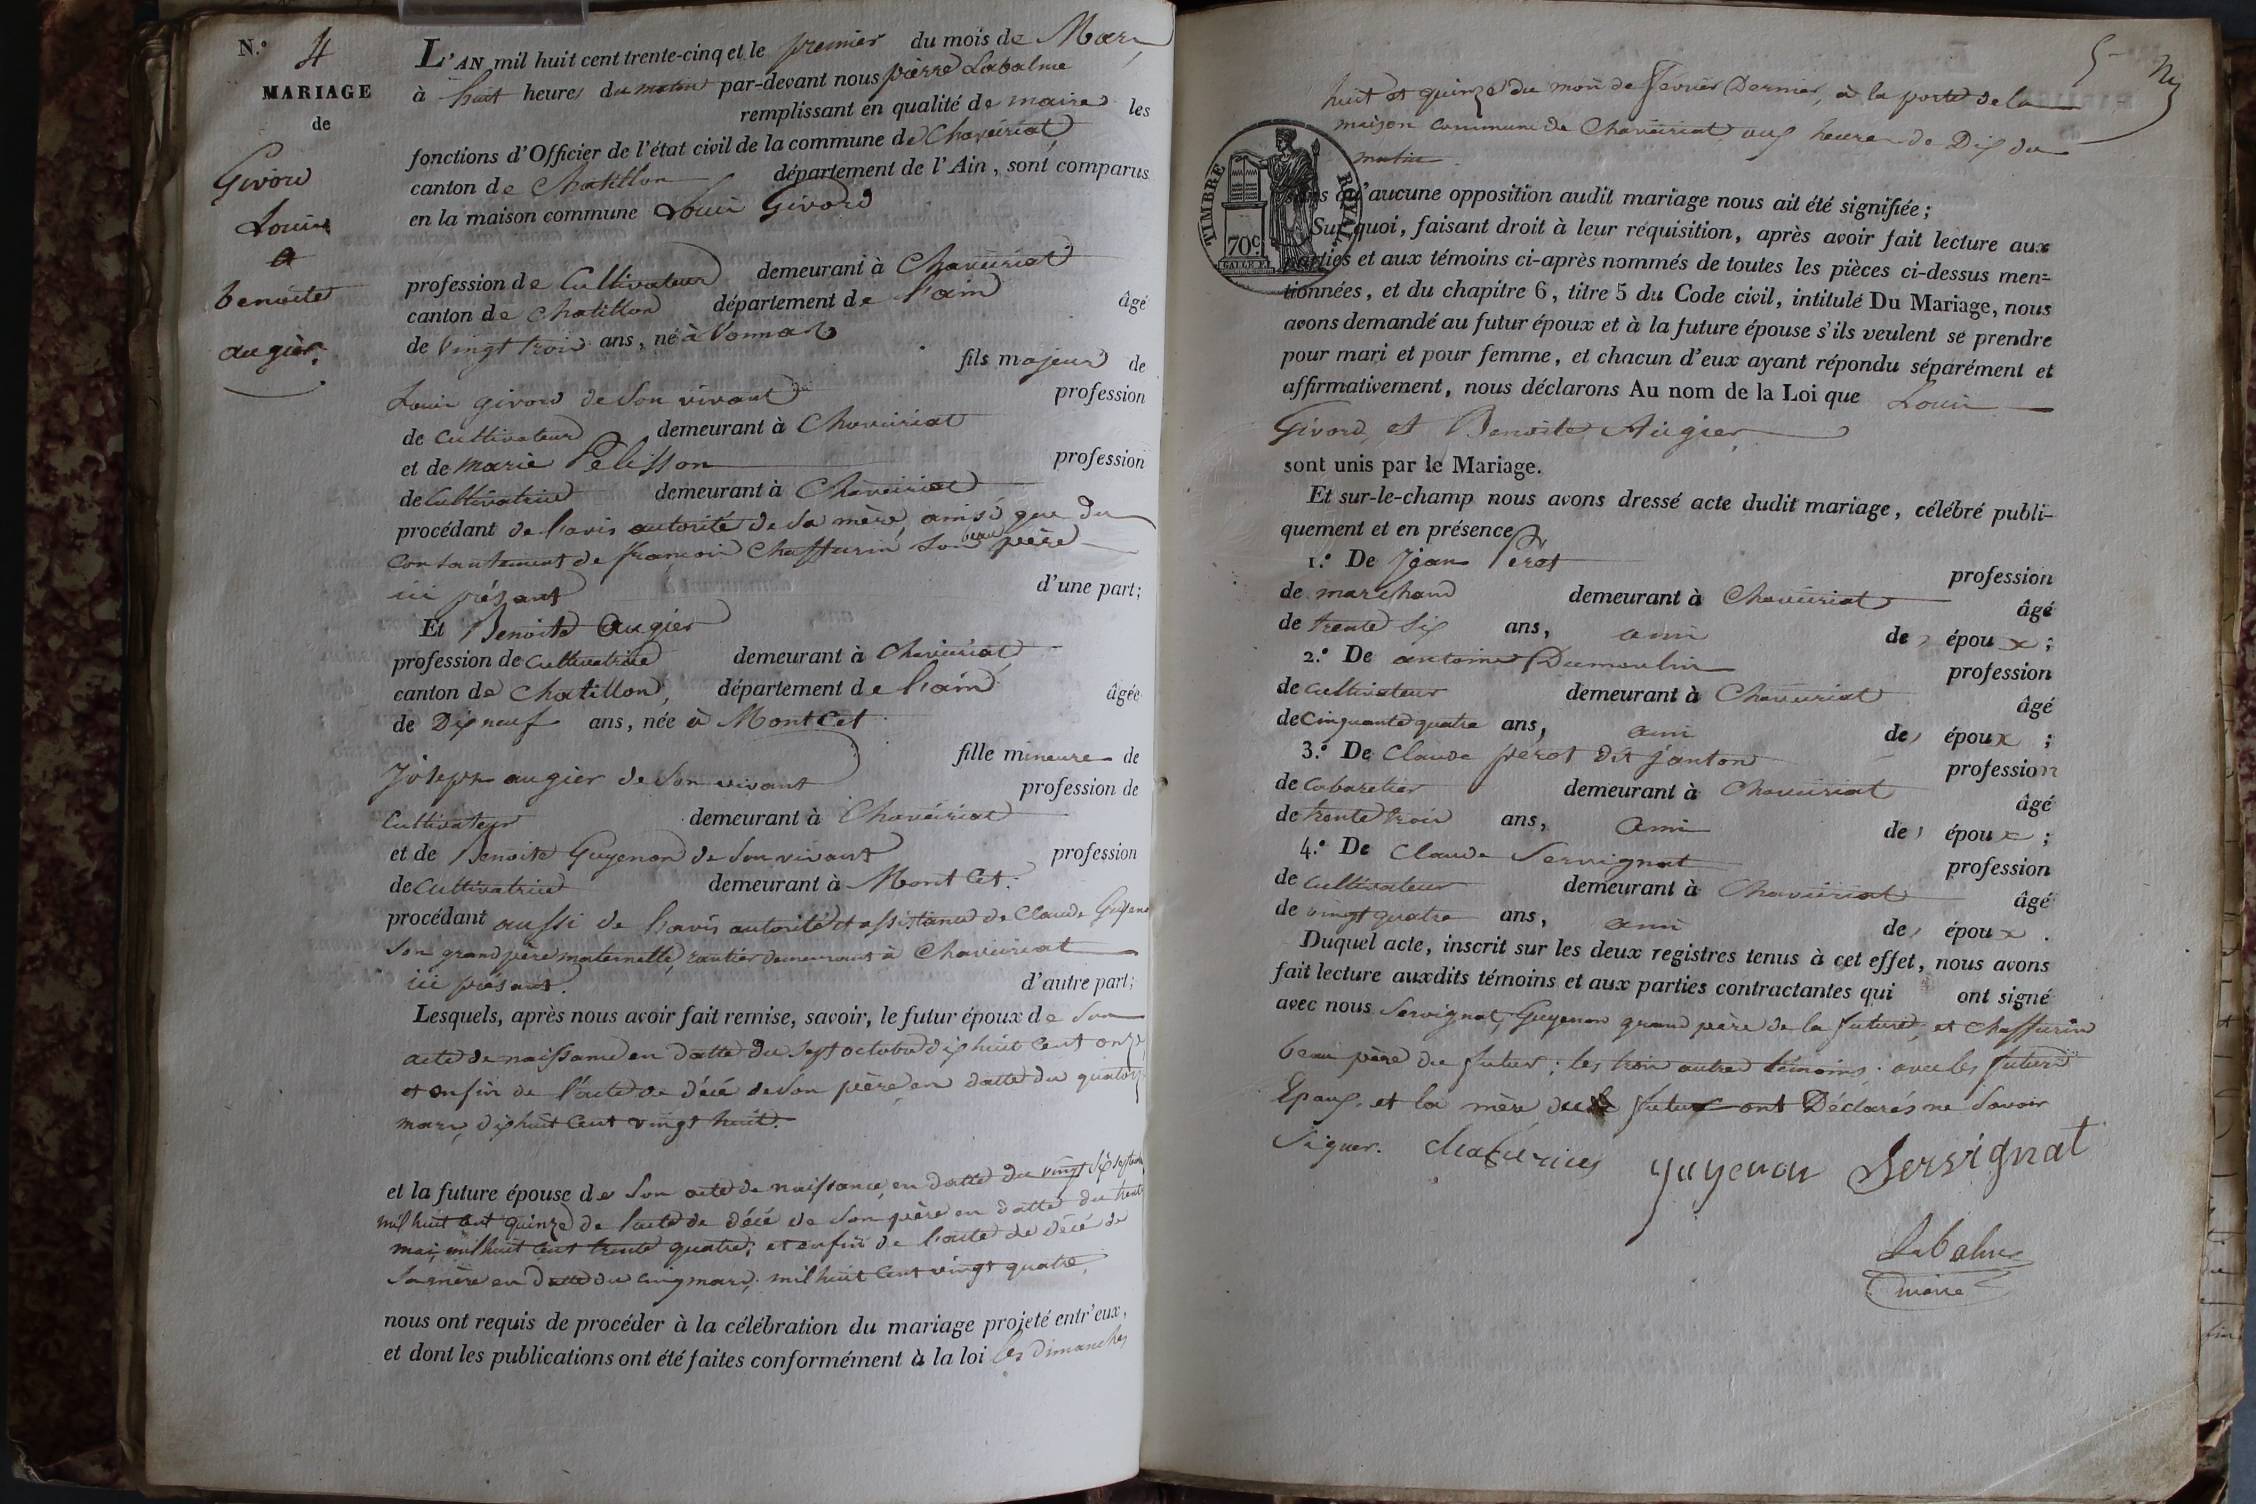 N.° 4
MARIAGE
de
Givord
Louis
&
benoite
augier.
L'AN mil huit cent trente-cinq et le premier du mois de Mars
à huit heures du matin par-devant nous pierre Labalme
remplissant en qualité de maire les
fonctions d'Officier de l'état civil de la commune de Chaveiriat
canton de Chatillon département de l'Ain, sont comparus
en la maison commune Louis Givord
profession de Cultivateur demeurant à Chaveiriat
canton de Chatillon département de l'ain âgé
de vingt trois ans, né à Vonnas
fils majeur de
Louis givord de son vivant profession
de Cultivateur demeurant à Chaveiriat
et de marie Pelisson profession
de Cultivatrice demeurant à Chaveiriat
procédant de l'avis autorité de sa mère, ainsi que du
consantement de françois Chaffurin son beau père
ici présant d'une part;
Et Benoite Augier
profession de Cultivatrice demeurant à Chaveiriat
canton de Chatillon, département de l'ain âgée
de Dix neuf ans, née à Montcet
fille mineure de
Joseph augier de son vivant profession de
Cultivateur demeurant à Chaveiriat
et de Benoite Guyenon de son vivant profession
de Cultivatrice demeurant à Montcet.
procédant aussi de l'avis autorité et assistance de Claude Guyenon
son grand père maternelle, rantier demeurant à Chaveiriat
ici présant. d'autre part;
Lesquels, après nous avoir fait remise, savoir, le futur époux de son
acte de naissance en datte du sept octobre dix huit cent onze,
et enfin de l'acte de décé de son père en datte du quatorze
mars, dix huit cent vingt huit.
et la future épouse de son acte de naissance, en datte du vingt six septembre
mil huit cent quinze de l'acte de décé de son père en datte du trente
mai, mil huit cent trente quatre; et enfin de l'acte de décé de
sa mère en datte du cinq mars, mil huit cent vingt quatre,
nous ont requis de procéder à la célébration du mariage projeté entr'eux,
et dont les publications ont été faites conformément à la loi les dimanches
5
huit et quinze du mois de fevrier Dernier, à la porte de la
maison commune de Chaveiriat aux heures de Dix du
matin.
TIMBRE ROYAL
70c.
sans qu'aucune opposition audit mariage nous ait été signifiée;
Sur quoi, faisant droit à leur réquisition, après avoir fait lecture aux
parties et aux témoins ci-après nommés de toutes les pièces ci-dessus men-
tionnées, et du chapitre 6, titre 5 du Code civil, intitulé Du Mariage, nous
avons demandé au futur époux et à la future épouse s'ils veulent se prendre
pour mari et pour femme, et chacun d'eux ayant répondu séparément et
affirmativement, nous déclarons Au nom de la Loi que Louis
Givord, et Benoite Augier
sont unis par le Mariage.
Et sur-le-champ nous avons dressé acte dudit mariage, célébré publi-
quement et en présence
1.° De Jean Perot profession
de marchand demeurant à Chaveiriat âgé
de trente six ans, ami de, époux;
2.° De antoine Dumoulin profession
de cultivateur demeurant à Chaveiriat âgé
de Cinquante quatre ans, ami de, époux;
3.° De Claude pérot dit janton profession
de cabaretier demeurant à Chaveiriat âgé
de trente trois ans, ami de, époux;
4.° De Claude Servignat profession
de cultivateur demeurant à Chaveiriat âgé
de vingt quatre ans, ami de, époux.
Duquel acte, inscrit sur les deux registres tenus à cet effet, nous avons
fait lecture auxdits témoins et aux parties contractantes qui ont signé
avec nous Servignat, Guyenon grand père de la future, et Chaffurin
beau père du futur; les trois autres témoins; avec les futurs
Epoux, et la mère du futur ont Déclarés ne savoir
signer. Guyenon Servignat
Labalme
maire